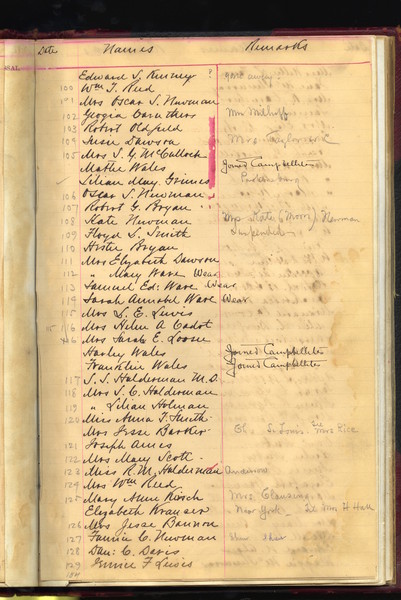 Date Names Remarks
Edward S. Kinney gone away
100 Wm T. Reed
101 Mrs Oscar S. Newman
102 Georgia Caruthers Mrs
103 Robert Oldfield
104 Susie Dawson Mrs
105 Mrs S. G. McCulloch
Mattie Wales Joined Campbellites
Lilian May Grimes
106 Oscar S. Newman
Robert G. Bryan
108 Kate Newman Mrs Kate (Moore) Newman
109 Floyd S. Smith Suspended
110 Hester Bryan
111 Mrs Elizabeth Dawson
112 " Mary Ware Wear
113 Samuel Ed: Ware Wear
114 Sarah Annabel Ware Wear
115 Mrs L. E. Lewis
116 Mrs Helen A. Cadot
Mrs Sarah E. Loose
Harley Wales Joined Campbellites
Franklin Wales Joined Campbellites
117 S. S. Halderman M.D.
118 Mrs S. C. Halderman
119 " Lilian Holman
120 Miss Anna T. Smith
Mrs Jesse Barker St. Louis Mrs Rice
121 Joseph Ames
122 Mrs Mary Scott
123 Miss R. M. Halderman
124 Mrs Wm Reed
125 Mary Anne Kirsch Mrs
Elizabeth New York
126 Mrs Jesse Bannon
127 Fannie C. Newman
128 Dan: C. Davis
129 Eunice F Lewis